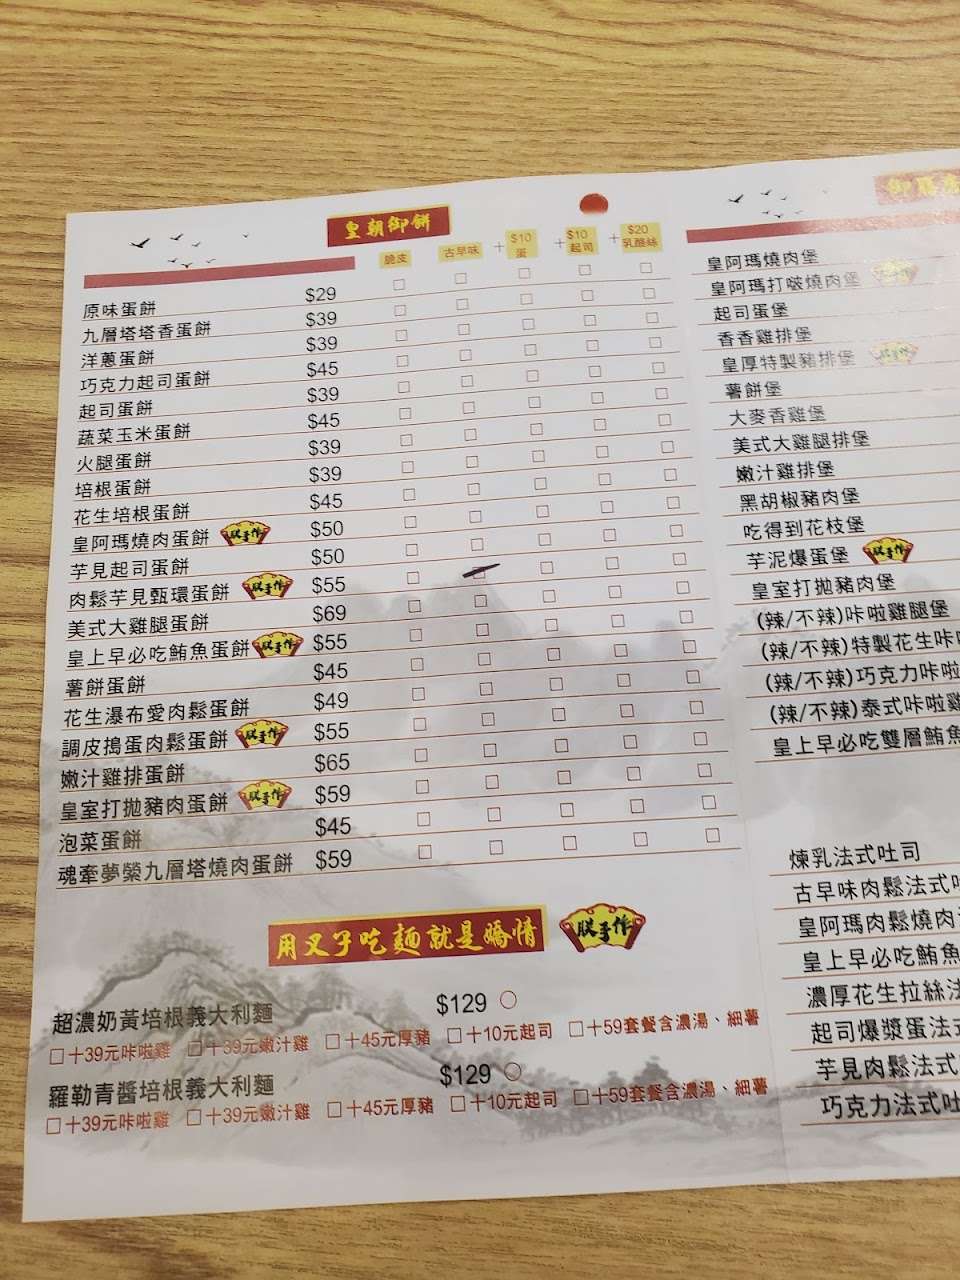 皇朝御餅
脆皮 古早味 +$10蛋 +$10起司 +$20乳酪絲
原味蛋餅 $29
九層塔塔香蛋餅 $39
洋蔥蛋餅 $39
巧克力起司蛋餅 $45
起司蛋餅 $39
蔬菜玉米蛋餅 $45
火腿蛋餅 $39
培根蛋餅 $39
花生培根蛋餅 $45
皇阿瑪燒肉蛋餅 朕手作 $50
芋見起司蛋餅 $50
肉鬆芋見甄環蛋餅 朕手作 $55
美式大雞腿蛋餅 $69
皇上早必吃鮪魚蛋餅 朕手作 $55
薯餅蛋餅 $45
花生瀑布愛肉鬆蛋餅 $49
調皮搗蛋肉鬆蛋餅 朕手作 $55
嫩汁雞排蛋餅 $65
皇室打拋豬肉蛋餅 朕手作 $59
泡菜蛋餅 $45
魂牽夢縈九層塔燒肉蛋餅 $59
用叉子吃麵就是矯情 朕手作
超濃奶黃培根義大利麵 $129 ○
□+39元咔啦雞 □+39元嫩汁雞 □+45元厚豬 □+10元起司 □+59套餐含濃湯、細薯
羅勒青醬培根義大利麵 $129 ○
□+39元咔啦雞 □+39元嫩汁雞 □+45元厚豬 □+10元起司 □+59套餐含濃湯、細薯
皇阿瑪燒肉堡
皇阿瑪打啵燒肉堡 朕手作
起司蛋堡
香香雞排堡
皇厚特製豬排堡 朕手作
薯餅堡
大麥香雞堡
美式大雞腿排堡
嫩汁雞排堡
黑胡椒豬肉堡
吃得到花枝堡
芋泥爆蛋堡 朕手作
皇室打拋豬肉堡
(辣/不辣)咔啦雞腿堡
(辣/不辣)特製花生咔
(辣/不辣)巧克力咔啦
(辣/不辣)泰式咔啦雞
皇上早必吃雙層鮪魚
煉乳法式吐司
古早味肉鬆法式
皇阿瑪肉鬆燒肉
皇上早必吃鮪魚
濃厚花生拉絲法
起司爆漿蛋法式
芋見肉鬆法式
巧克力法式吐